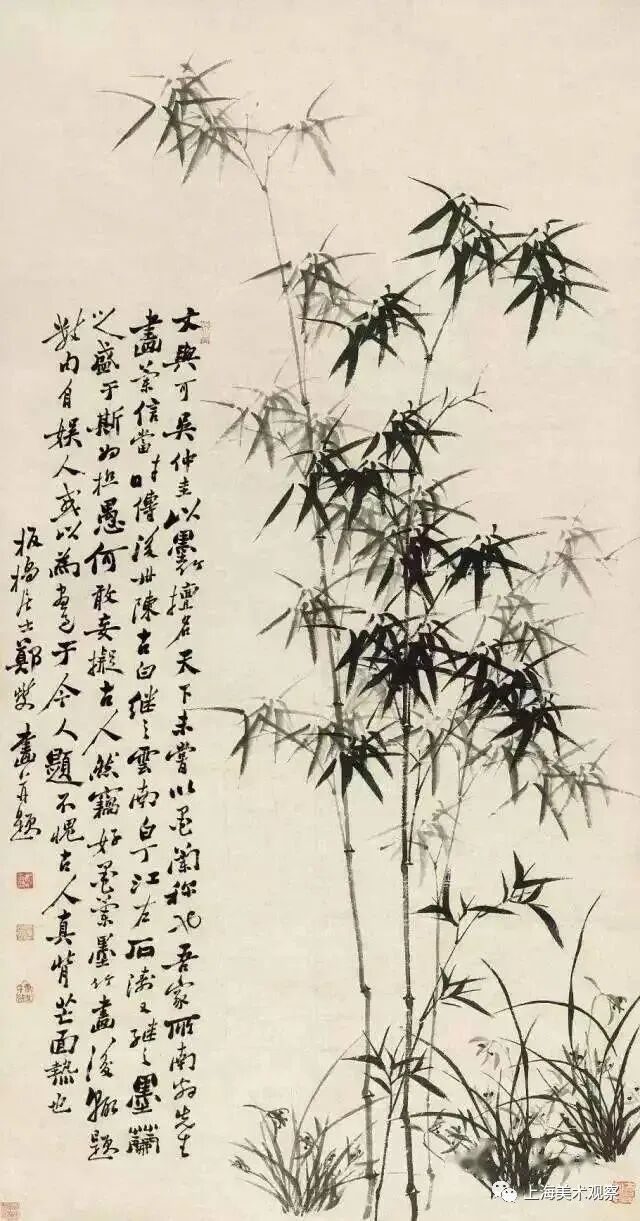 文與可吳仲圭以墨竹擅名天下未嘗以墨蘭称也吾家所南翁先生
畫蘭信當时傳後世陳古白继之雲南白丁江右石濤又继之墨蘭
之盛于斯为极愚何敢妄擬古人然竊好墨蘭墨竹畫後輒題
數句自娱人或以為畫过于今人題不愧古人真背芒面熱也
板橋居士鄭燮畫并題
上海美术观察